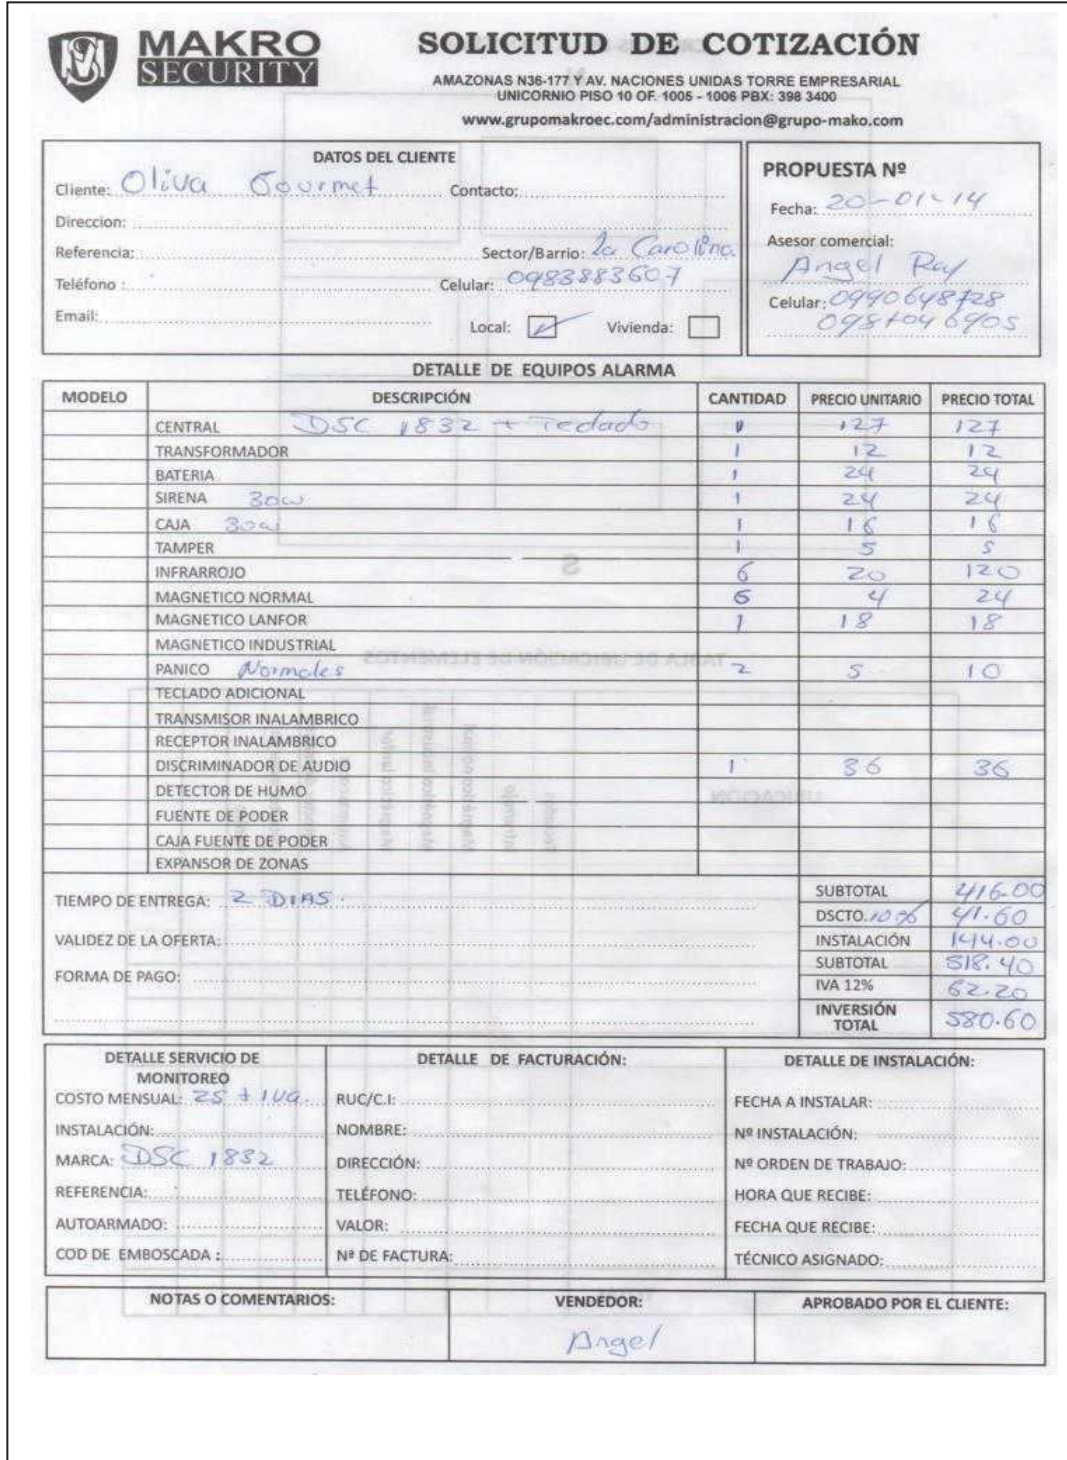 MAKRO
SECURITY
SOLICITUD DE COTIZACIÓN
AMAZONAS N36-177 Y AV. NACIONES UNIDAS TORRE EMPRESARIAL
UNICORNIO PISO 10 OF. 1005 - 1006 PBX: 398 3400
www.grupomakroec.com/administracion@grupo-mako.com
DATOS DEL CLIENTE
Cliente: Oliva Gourmet Contacto:
Direccion:
Referencia: Sector/Barrio: La Carolina
Teléfono : Celular: 0983883607
Email:
Local: Vivienda:
PROPUESTA Nº
Fecha: 20-01-14
Asesor comercial:
Angel Ray
Celular: 0990648728
0987046905
DETALLE DE EQUIPOS ALARMA
MODELO DESCRIPCIÓN CANTIDAD PRECIO UNITARIO PRECIO TOTAL
CENTRAL DSC 1832 + Teclado 1 127 127
TRANSFORMADOR 1 12 12
BATERIA 1 24 24
SIRENA 30w 1 24 24
CAJA 30w 1 16 16
TAMPER 1 5 5
INFRARROJO 6 20 120
MAGNETICO NORMAL 6 4 24
MAGNETICO LANFOR 1 18 18
MAGNETICO INDUSTRIAL
PANICO Normales 2 5 10
TECLADO ADICIONAL
TRANSMISOR INALAMBRICO
RECEPTOR INALAMBRICO
DISCRIMINADOR DE AUDIO 1 36 36
DETECTOR DE HUMO
FUENTE DE PODER
CAJA FUENTE DE PODER
EXPANSOR DE ZONAS
TIEMPO DE ENTREGA: 2 DIAS.
VALIDEZ DE LA OFERTA:
FORMA DE PAGO:
SUBTOTAL 416.00
DSCTO. 10% 41.60
INSTALACIÓN 144.00
SUBTOTAL 518.40
IVA 12% 62.20
INVERSIÓN TOTAL 580.60
DETALLE SERVICIO DE
MONITOREO
COSTO MENSUAL: 25 + IVA.
INSTALACIÓN:
MARCA: DSC 1832
REFERENCIA:
AUTOARMADO:
COD DE EMBOSCADA :
DETALLE DE FACTURACIÓN:
RUC/C.I:
NOMBRE:
DIRECCIÓN:
TELÉFONO:
VALOR:
Nº DE FACTURA:
DETALLE DE INSTALACIÓN:
FECHA A INSTALAR:
Nº INSTALACIÓN:
Nº ORDEN DE TRABAJO:
HORA QUE RECIBE:
FECHA QUE RECIBE:
TÉCNICO ASIGNADO:
NOTAS O COMENTARIOS:
VENDEDOR:
Angel
APROBADO POR EL CLIENTE: